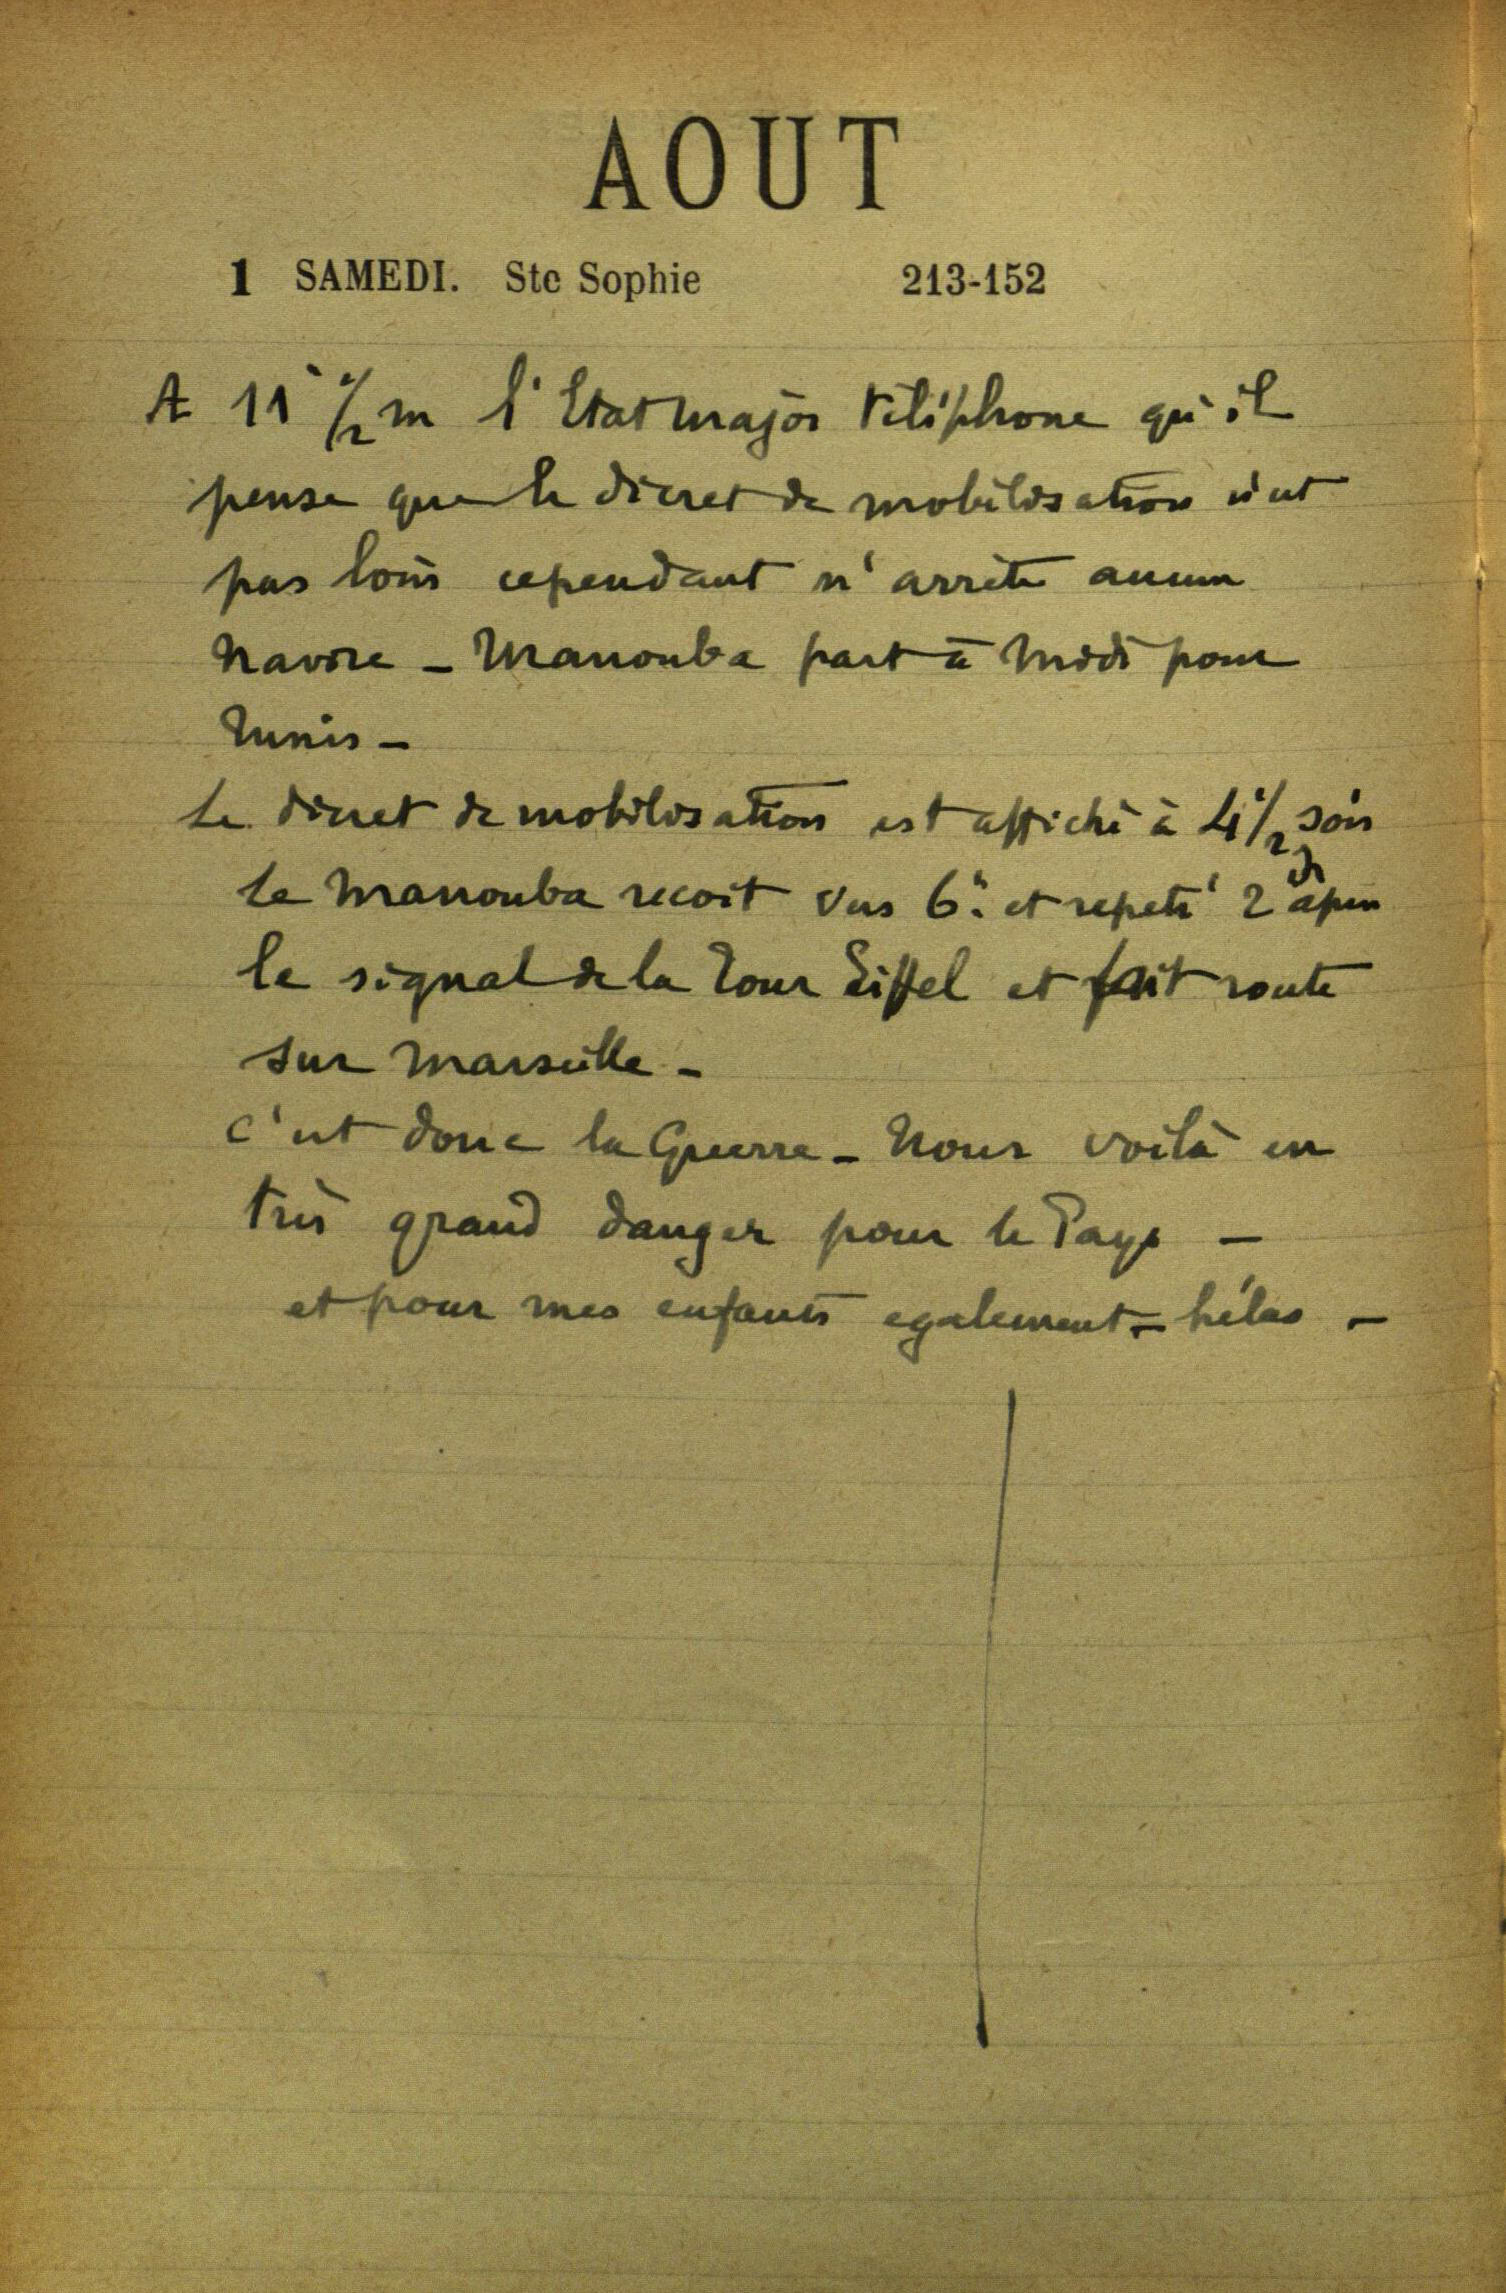 AOUT
1 SAMEDI. Ste Sophie 213-152
A 11h 1/2 m l'Etat major téléphone qu'il
pense que le décret de mobilisation n'est
pas loin cependant n'arrête aucun
navire - Manouba part à midi pour
Tunis -
Le décret de mobilisation est affiché à 4h 1/2 soir
Le Manouba reçoit vers 6h et répété 2h après
le signal de la Tour Eiffel et fait route
sur Marseille -
C'est donc la Guerre - Nous voilà en
très grand danger pour le Pays -
et pour mes enfants egalement - hélas -